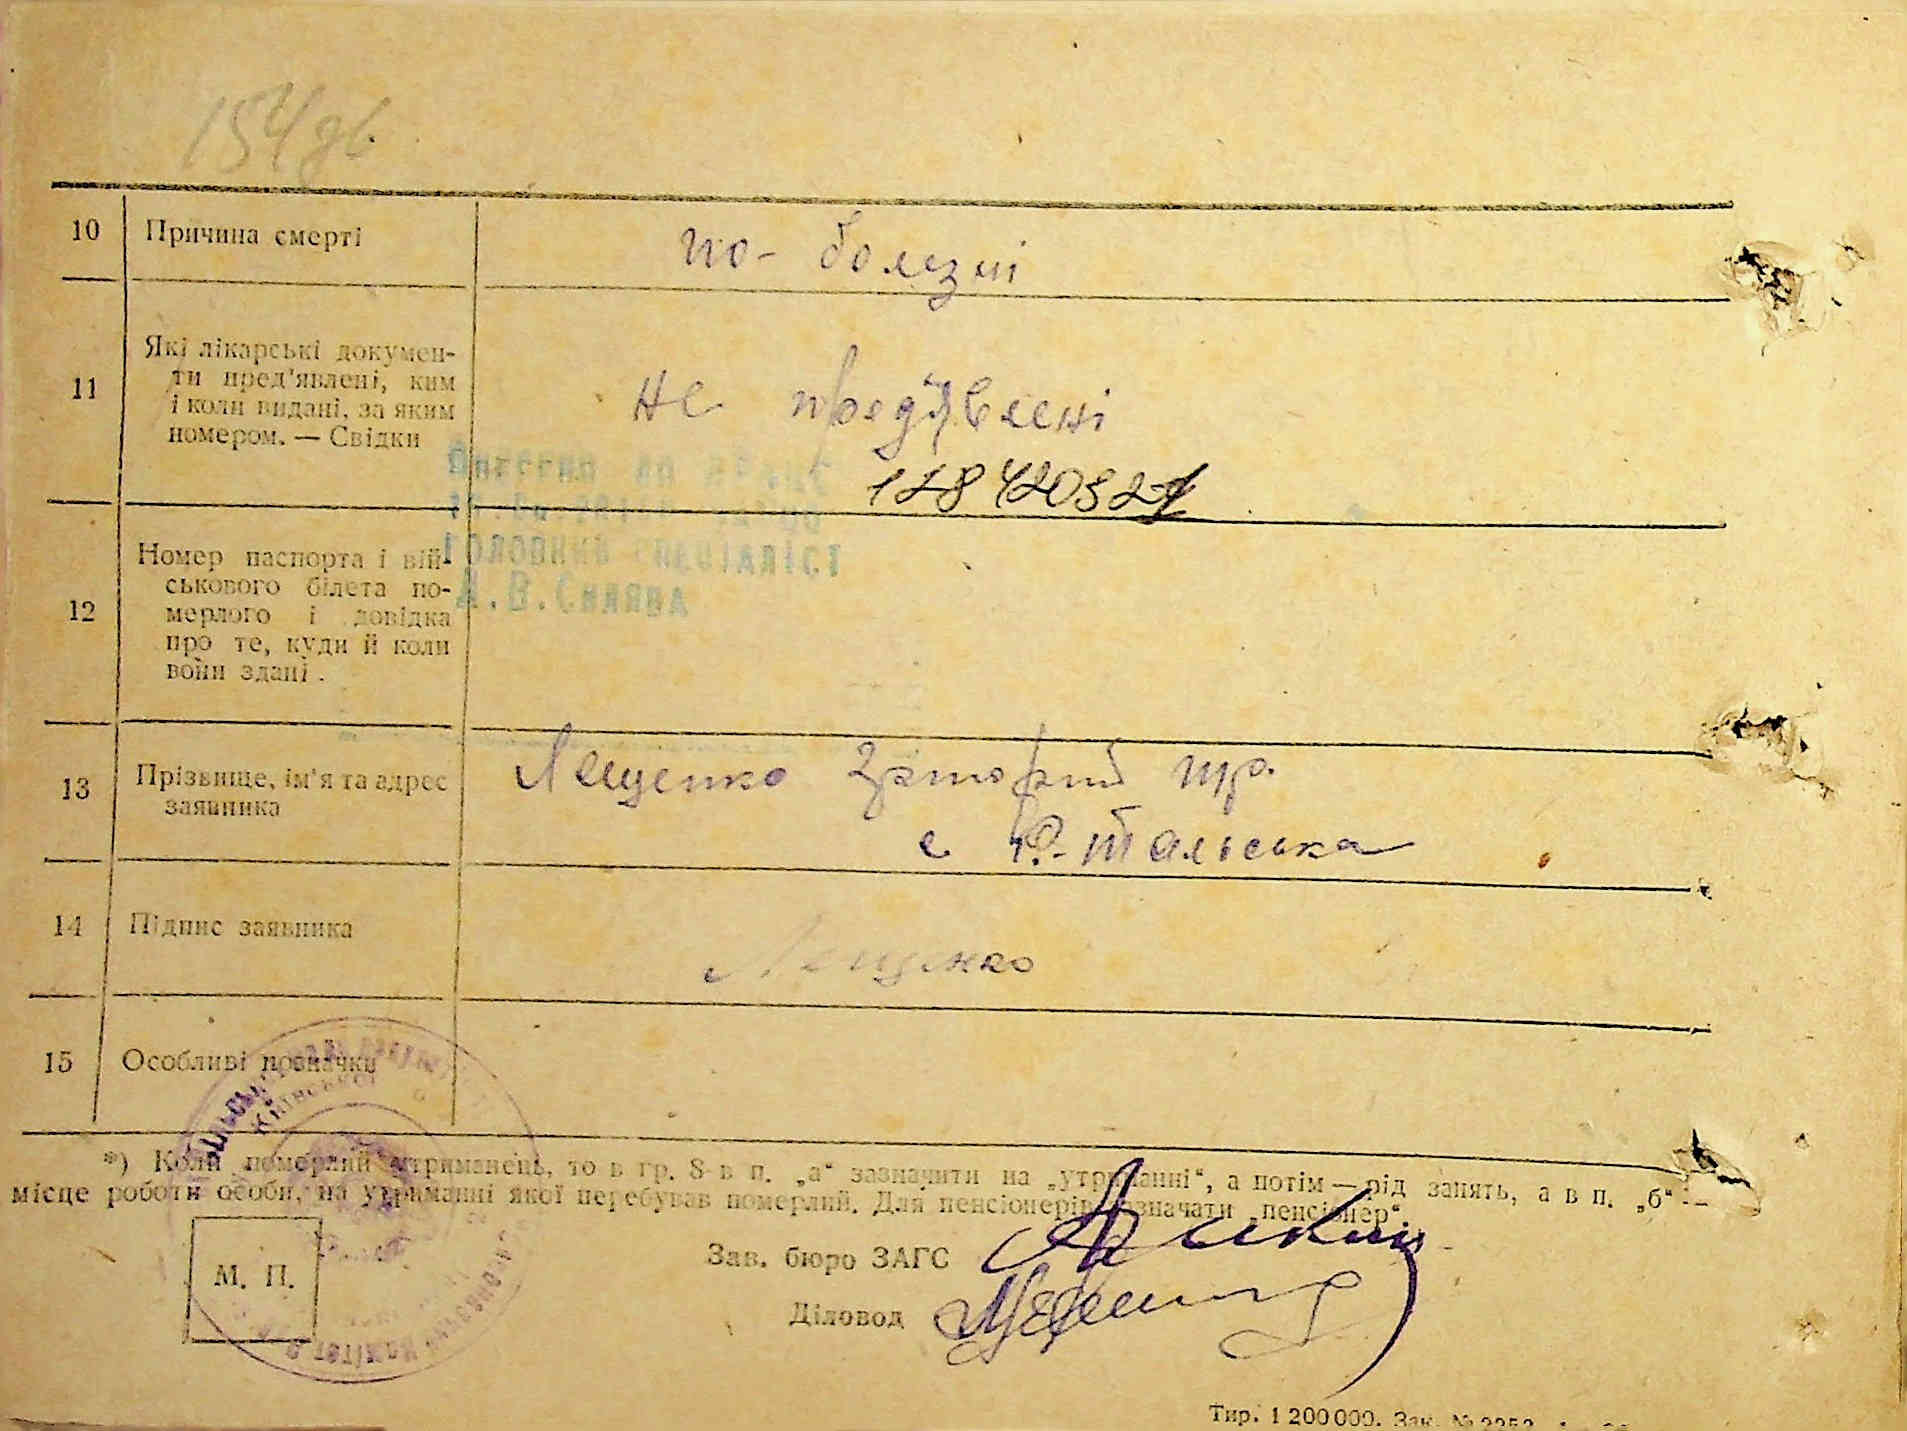 154
10 Причина смерті по-болезні
11 Які лікарські докумен-
ти пред'явлені, ким
і коли видані, за яким
номером. — Свідки
не предʼявлені
Внесено до ДРАЦС
Головний спеціаліст
12 Номер паспорта і вій-
ськового білета по-
мерлого і довідка
про те, куди й коли
вони здані.
13 Прізвище, ім'я та адрес
заявника
Лещенко
с Р.-Тальська
14 Підпис заявника Лещенко
15 Особливі позначки
Київської
*) Коли померлий утриманець, то в гр. 8 в п. „а“ зазначити на „утриманні“, а потім — рід занять, а в п. „б“ —
місце роботи особи, на утриманні якої перебував померлий. Для пенсіонерів зазначати „пенсіонер“.
М. П.
Зав. бюро ЗАГС
Діловод
Тир. 1 200 000. Зак. №